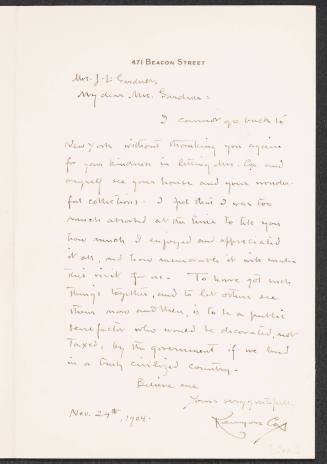 471 BEACON STREET
Mrs. J. L. Gardner,
My dear Mrs. Gardner:
I cannot go back to
New York without thanking you again
for your kindness in letting Mrs. Cox and
myself see your house and your wonder-
ful collections. I feel that I was too
much absorbed at the time to tell you
how much I enjoyed and appreciated
it all, and how memorable it will make
this visit for us. To have got such
things together, and to let others see
them now and then, is to be a public
benefactor who would be decorated, not
taxed, by the government if we lived
in a truly civilized country.
Believe me
Yours very gratefully,
Kenyon Cox
Nov. 24th, 1904.